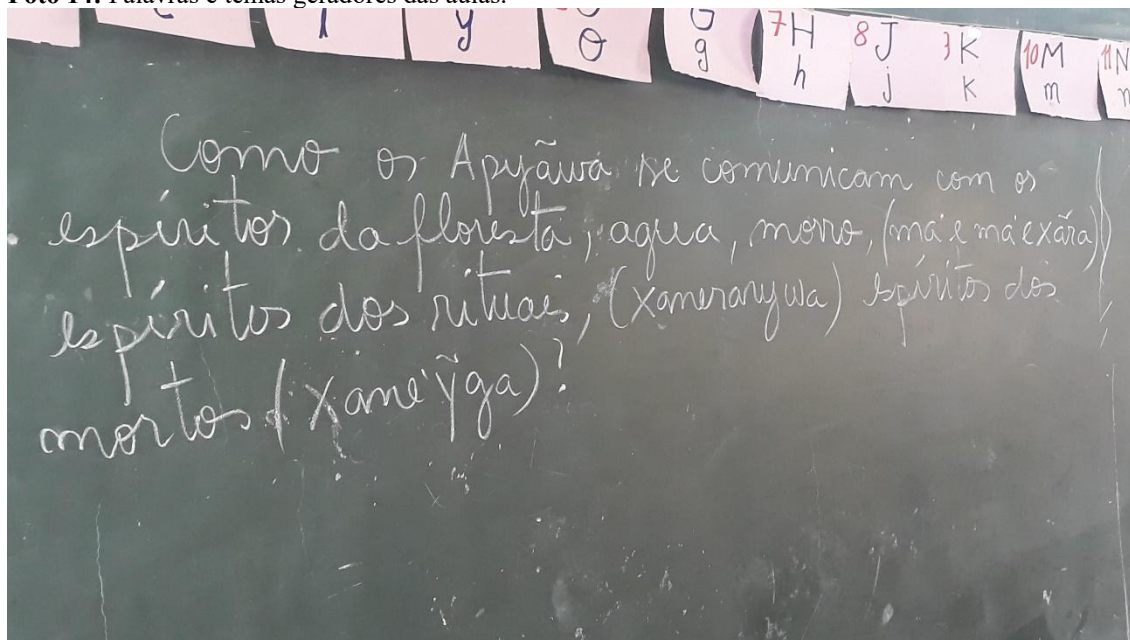 Foto 14. Palavras e temas geradores das aulas.
y O G 7H 8J K 10M 11N
y o g h j k m n
Como os Apyãwa se comunicam com os
espíritos da floresta, agua, morro, (ma'e ma'exãra)
espíritos dos rituais, (xaneranywa) espíritos dos
mortos (xane'ỹga)?